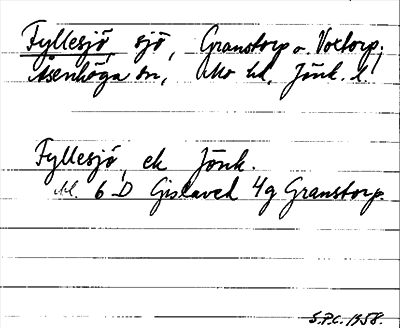 Fyllesjö sjö, Granstorp o. Voxtorp,
Åsenhöga sn, Mo hd, Jönk. l.
Fyllesjö, ek Jönk.
bl. 6 D Gislaved 4g Granstorp.
S.P.C. 1958.